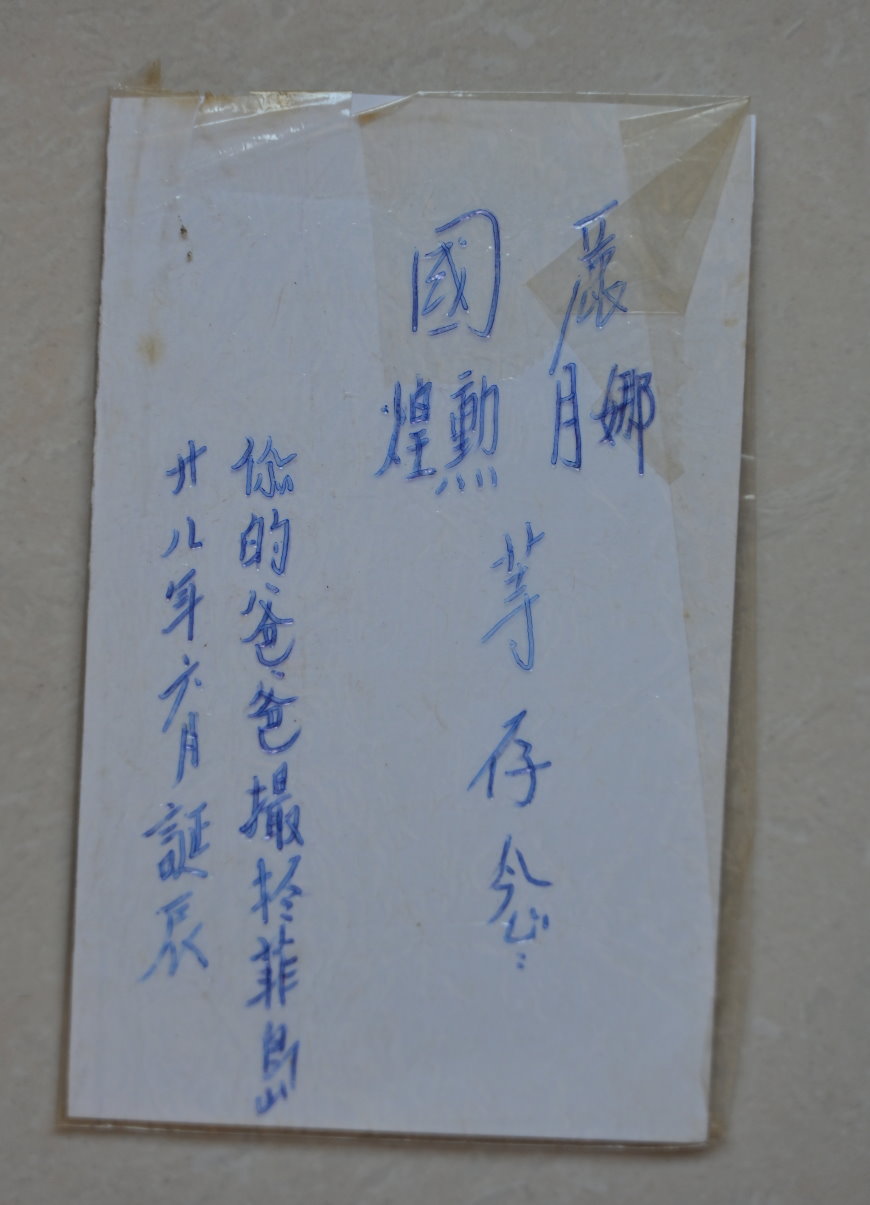 麗娜月
國勳煌
等存念
你的爸爸撮於菲島
廿八年六月誕辰